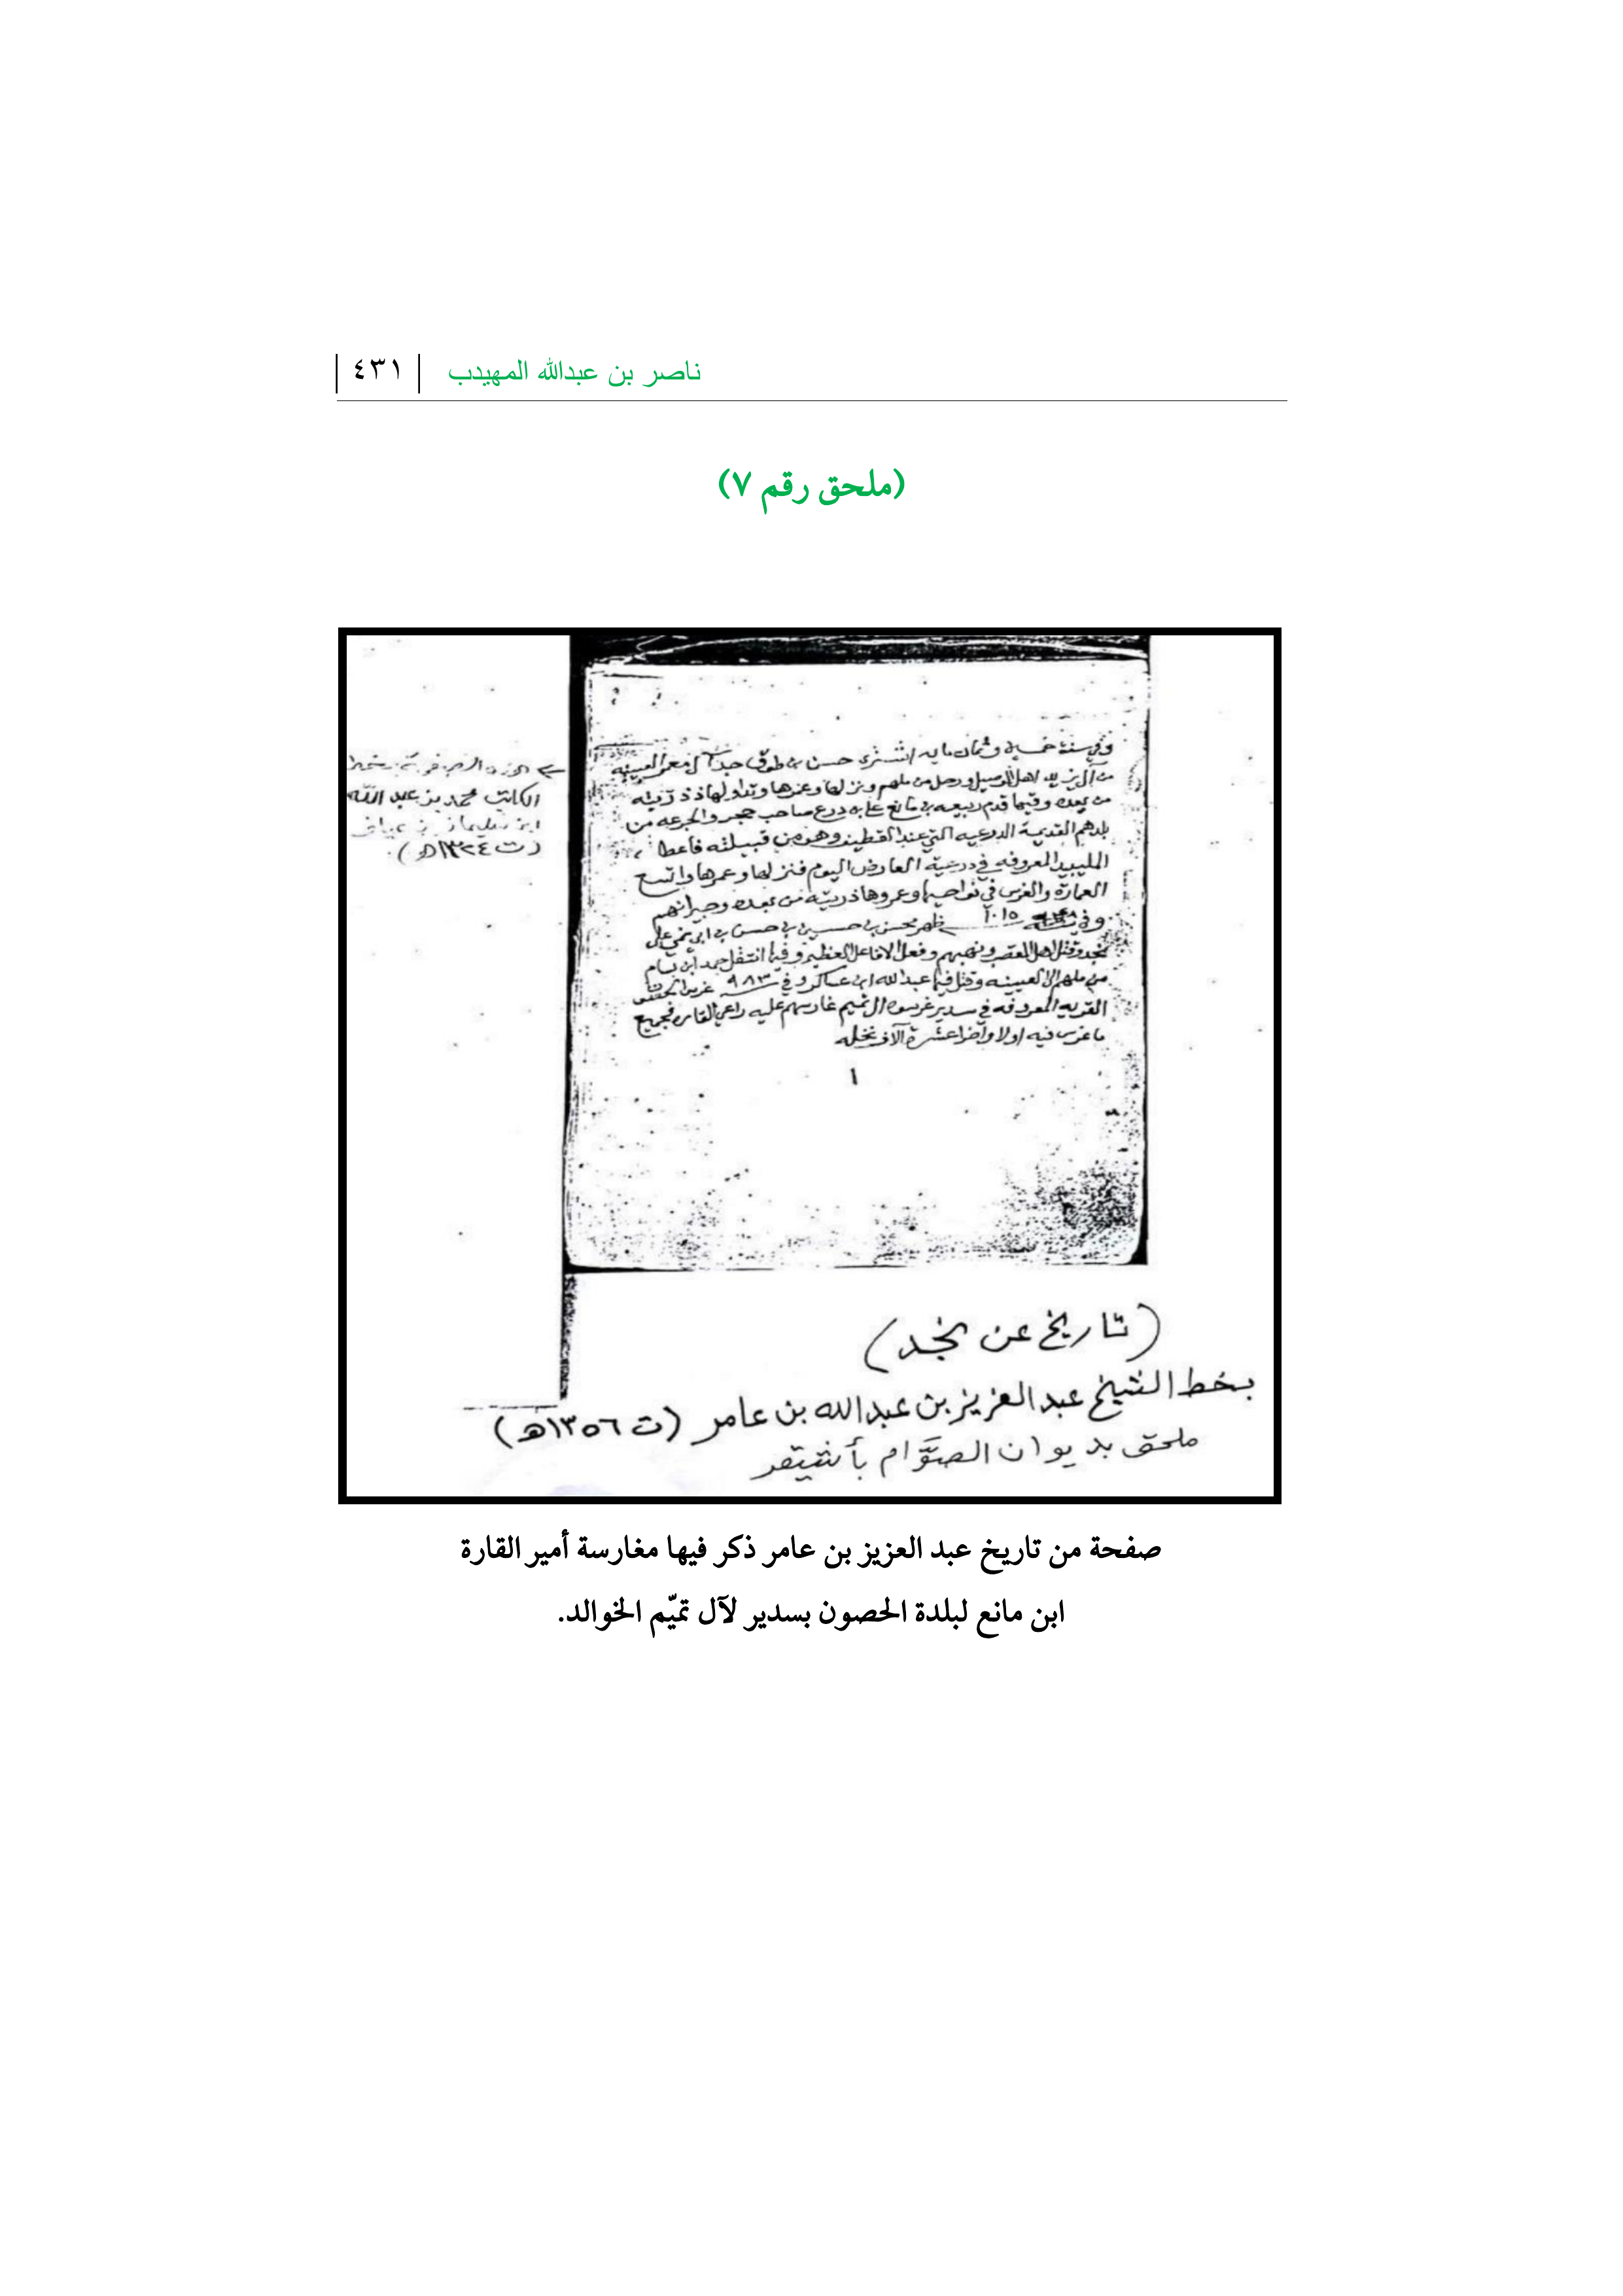 ناصر بن عبدالله المهيدب | ٤٣١ |
(ملحق رقم ٧)
وفي سنة خمسين وثمان مايه اشترى حسن بن طوق جد آل معمر العيينه
من آل يزيد اهل الوصيل ورحل من ملهم ونزلها وعمرها وتداولها ذريته
من بعده وفيها قدم ربيعه بن مانع على بن درع صاحب حجر والجزعه من
بلدهم القديمة الدرعيه التي عند القطيف وهو من قبيلته فاعطا
المليبيد المعروفه في درعية العارض اليوم فنزلها وعمرها واتسع
العمارة والغرس في نواحيها وعمروها ذريته من بعده وجيرانهم
وفي سنة ١٠١٥ ظهر محسن بن حسين بن حسن بن ابي نمي على
نجد وقتل اهل القصب ونهبهم وفعل الافاعل العظيم وفيها انتقل حمد ابن بسام
من ملهم الى العيينه وقتل فيها عبدالله ابن عساكر وفي سنة ٩٨٣ غرس الحصون
القريه المعروفه في سدير غرسوه ال تميم غارسهم عليه راعي القاره فجميع
ما غرس فيه اولا وآخرا عشرة الآف نخله
١
الكاتب محمد بن عبد الله
ابن سليمان بن
(ت ١٣٢٤هـ).
(تاريخ عن نجد)
بخط الشيخ عبد العزيز بن عبدالله بن عامر (ت ١٣٥٦هـ)
ملحق بديوان الصوَّام بأشيقر
صفحة من تاريخ عبد العزيز بن عامر ذكر فيها مغارسة أمير القارة
ابن مانع لبلدة الحصون بسدير لآل تميّم الخوالد.